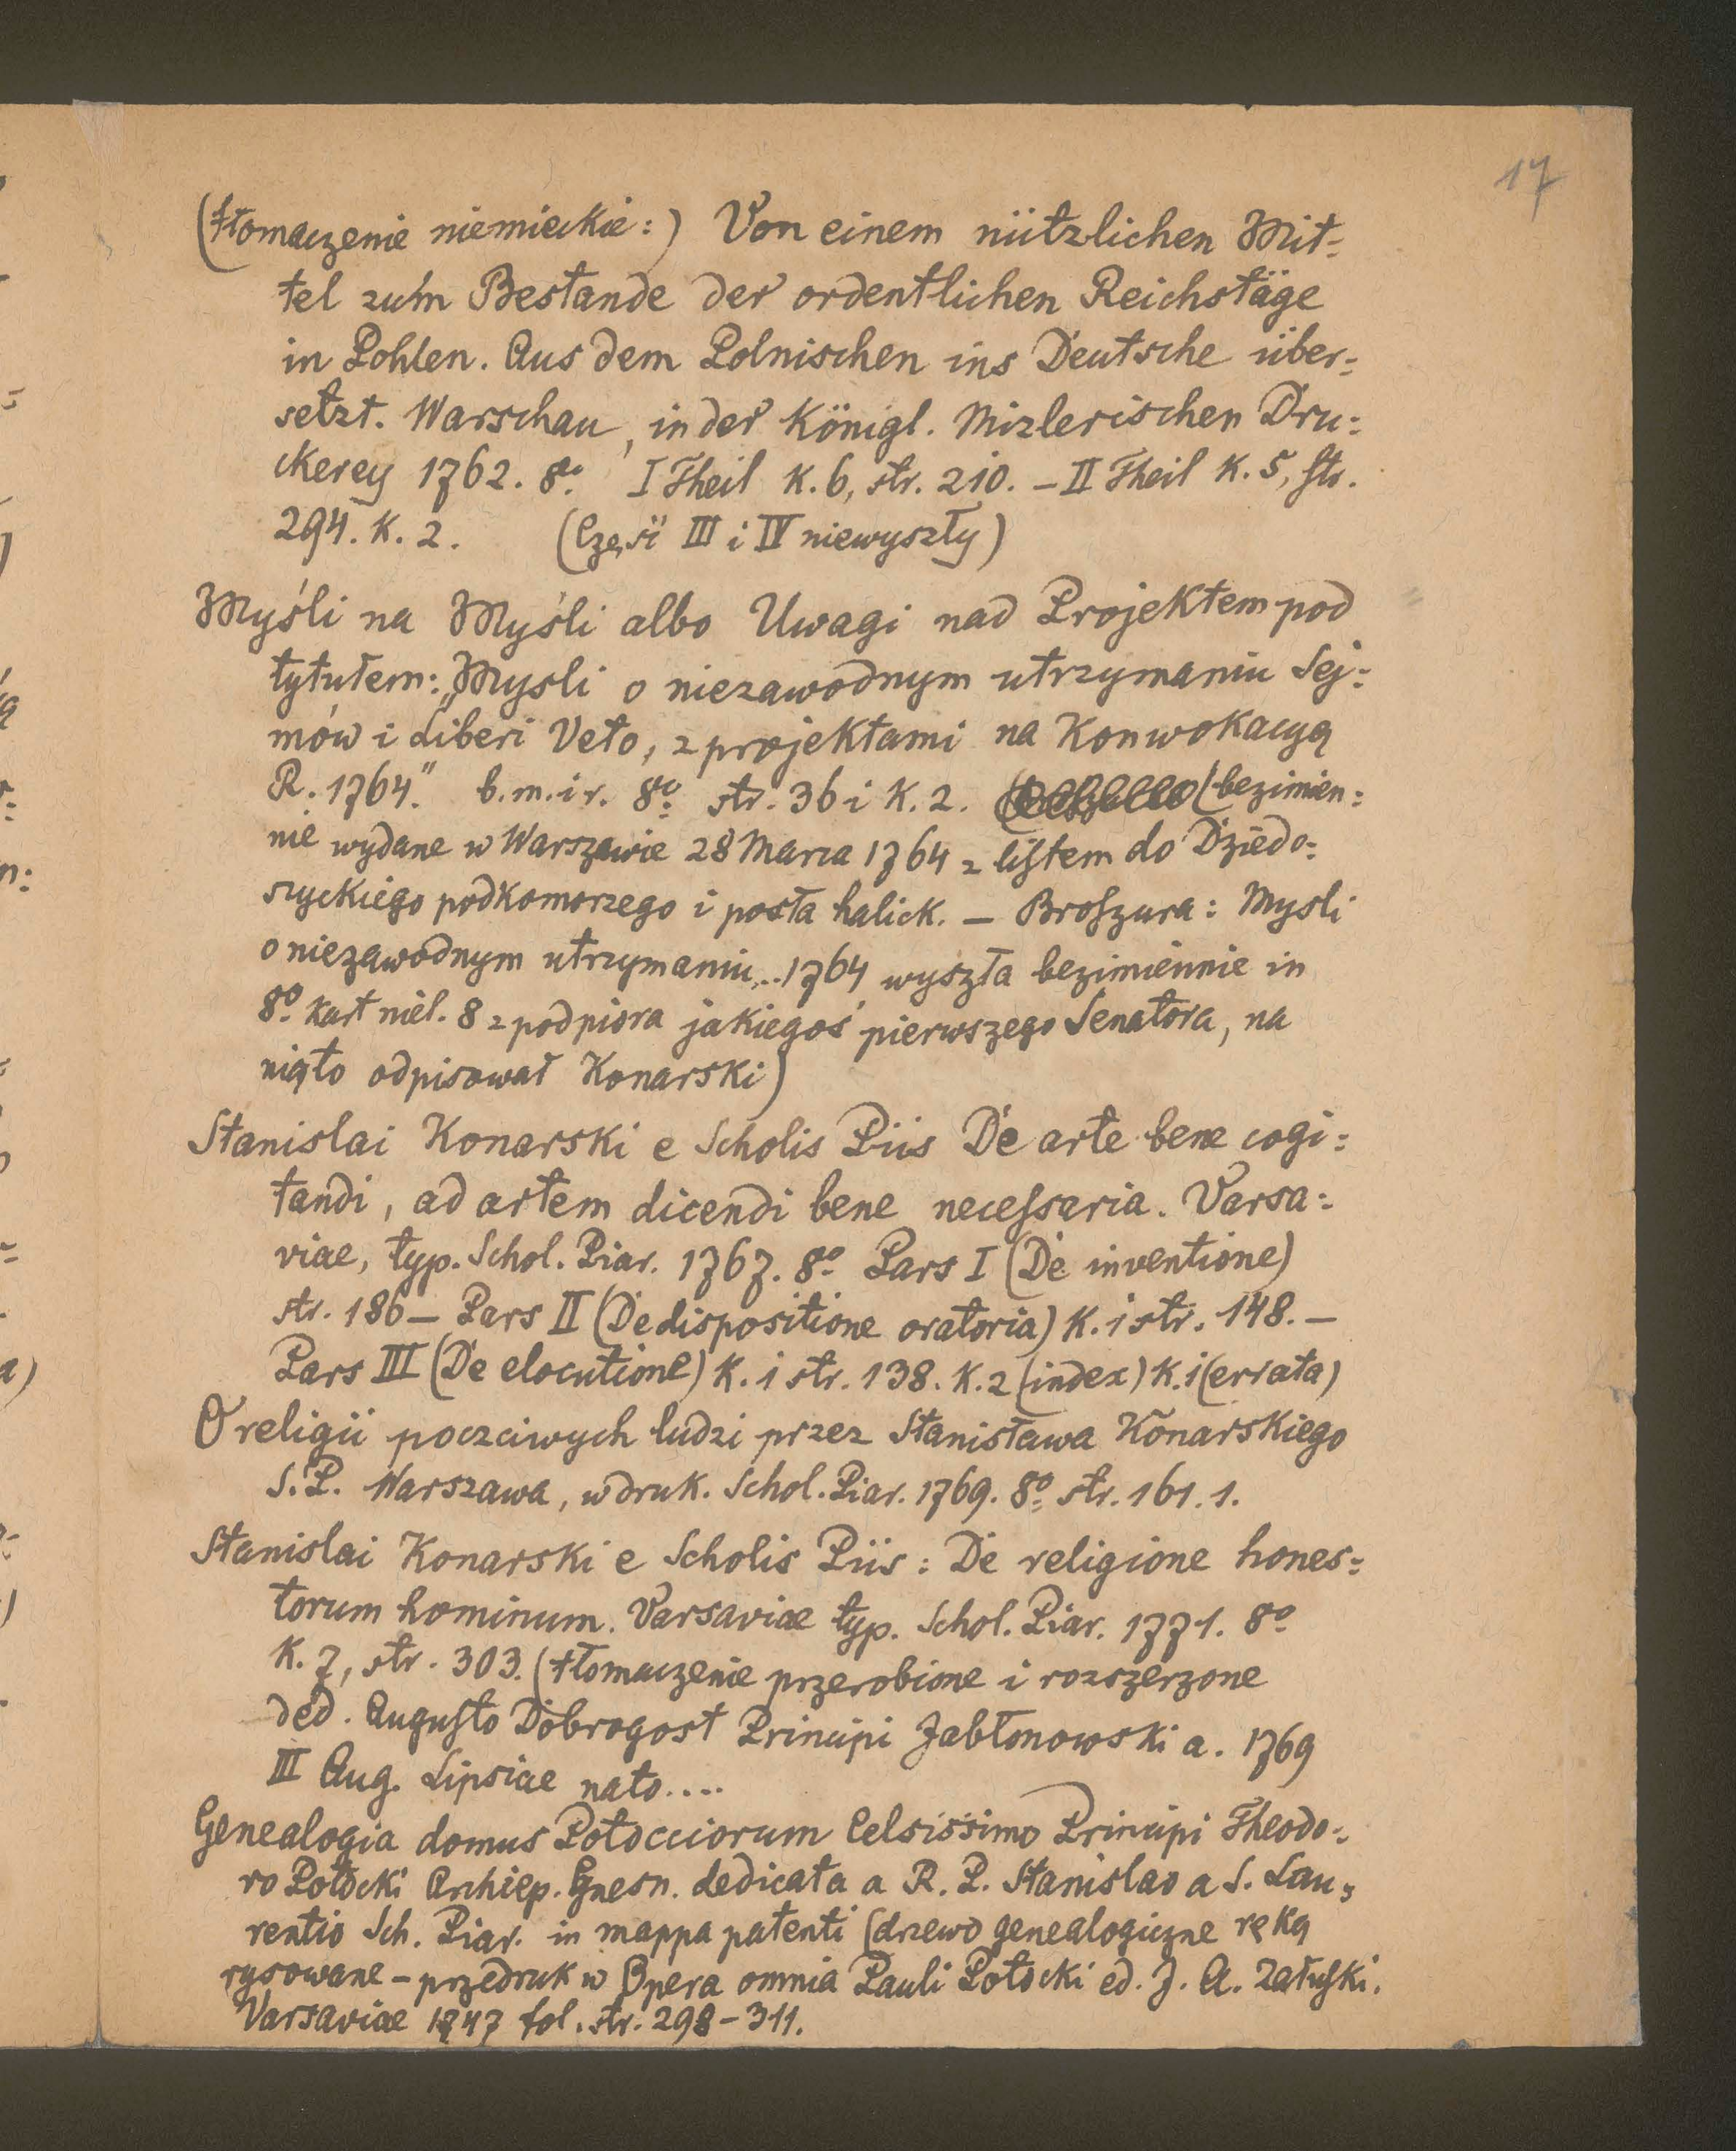 17
(tłomaczenie niemieckie:) Von einem nützlichen Mit=
tel zum Bestande der ordentlichen Reichstäge
in Pohlen. Aus dem Polnischen ins Deutsche über=
setzt. Warschau, in der Königl. Mizlerischen Dru=
ckerey 1762. 8o. I Theil K. 6, str. 210. – II Theil K. 5, str.
294. K. 2. (Części III i IV niewyszły)
Myśli na Myśli albo Uwagi nad Projektem pod
tytułem: „Mysli o niezawodnym utrzymaniu Sej=
mów i Liberi Veto, z projektami na Konwokacyą
R. 1764." b.m.i r. 8o str. 36 i K. 2. (bezimien=
nie wydane w Warszawie 28 Marca 1764 z listem do Dziedo=
szyckiego podkomorzego i posła halick. – Broszura: Mysli
o niezawodnym utrzymaniu... 1764 wyszła bezimiennie in
8o kart niel. 8 z pod pióra jakiegoś pierwszego Senatora, na
nią to odpisował Konarski)
Stanislai Konarski e Scholis Piis De arte bene cogi=
tandi, ad artem dicendi bene necessaria. Varsa=
viae, typ. Schol. Piar. 1767. 8o Pars I (De inventione)
str. 186 – Pars II (De dispositione oratoria) K. 1 str. 148. –
Pars III (De elocutione) K. 1 str. 138. K. 2 (index) K. 1 (errata)
O religii poczciwych ludzi przez Stanisława Konarskiego
S. P. Warszawa, w druk. Schol. Piar. 1769. 8o str. 161. 1.
Stanislai Konarski e Scholis Piis: De religione hones=
torum hominum. Varsaviae typ. Schol. Piar. 1771. 8o
K. 7, str. 303. (tłomaczenie przerobione i rozszerzone
ded. Augusto Dobrogost Principi Jabłonowski a. 1769
III Aug. Lipsiae nato....
Genealogia domus Potocciorum Celsissimo Principi Theodo=
ro Potocki Archiep. Gnesn. dedicata a R. P. Stanislao a S. Lau=
rentio Sch. Piar. in mappa patenti (drzewo genealogiczne ręką
rysowane – przedruk w Opera omnia Pauli Potocki ed. J. A. Załuski.
Varsaviae 1747 fol. str. 298–311.